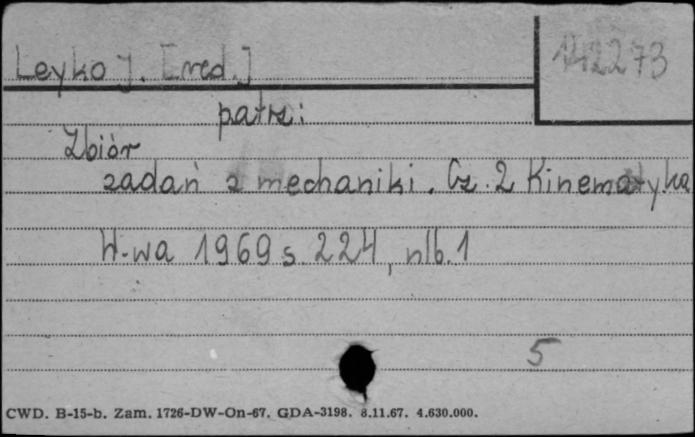 Leyko J. [red.]
142273
patrz:
Zbiór
zadań z mechaniki. Cz. 2 Kinematyka
W-wa 1969 s. 224, nlb. 1
5
CWD. B-15-b. Zam. 1726-DW-On-67. GDA-3198. 8.11.67. 4.630.000.